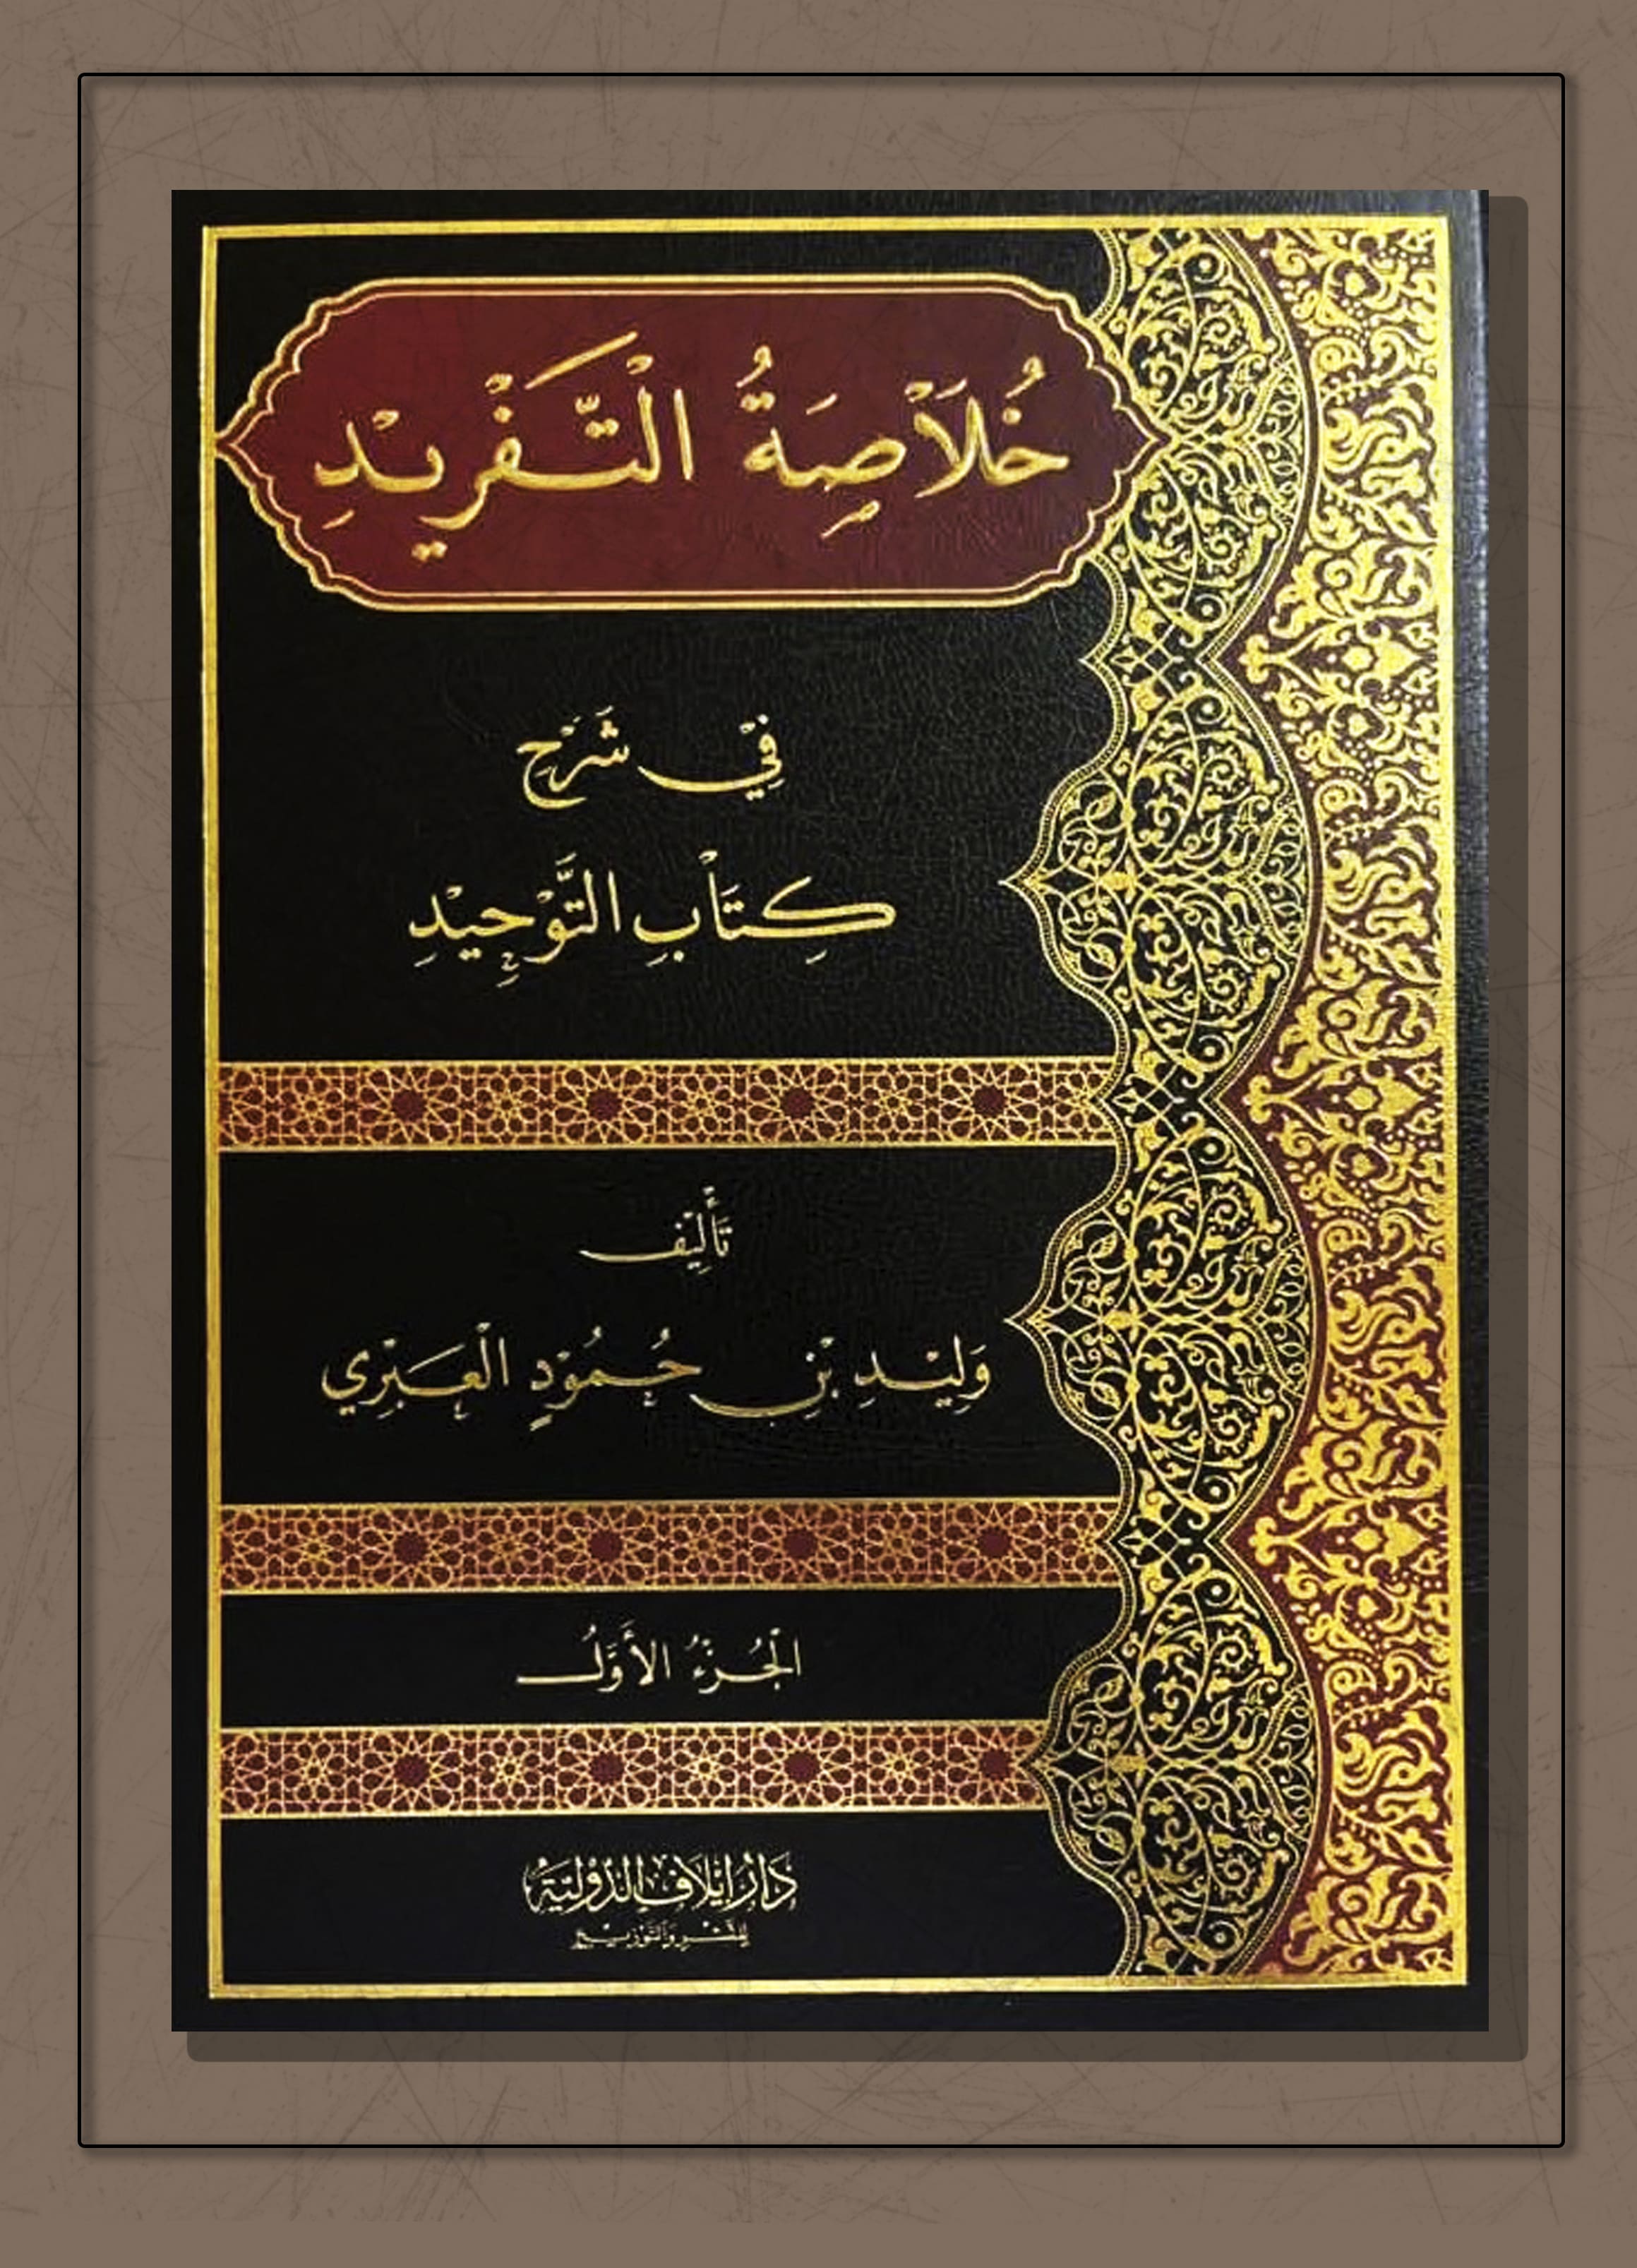 خُلَاصَةُ التَّفْرِيْدِ
فِيْ شَرْحِ
كِتَابِ التَّوْحِيْدِ
تَأْلِيْفِ
وَلِيْدِ بْنِ حُمُوْدٍ الْعَبْرِي
الْجُزْءُ الْأَوَّلُ
دَارُ إِيْلَافِ الدَّوْلِيَّةِ
لِلنَّشْرِ وَالتَّوْزِيْعِ